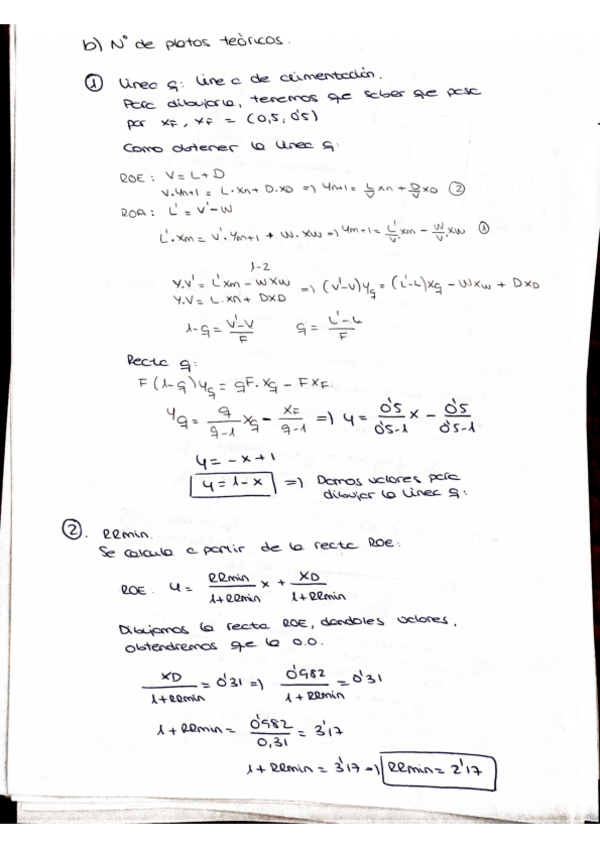 b) Nº de platos teóricos.
① Línea q: línea de alimentación.
Para dibujarla, tenemos que saber que pasa
por XF, XF = (0,5, 0'5)
Como obtener la línea q:
ROE: V = L + D
V·Yn+1 = L·Xn + D·XD => Yn+1 = L/V Xn + D/V XD ②
ROA: L' = V' - W
L'·Xm = V'·Ym+1 + W·XW => Ym+1 = L'/V' Xm - W/V' XW ①
1-2
Y·V' = L'Xm - WXW
Y·V = L·Xn + DXD
=> (V'-V)Yq = (L'-L)Xq - WXW + DXD
1-q = V'-V/F q = L'-L/F
Recta q:
F(1-q)Yq = qF·Xq - FXF
Yq = q/q-1 Xq - XF/q-1 => y = 0'5/0'5-1 x - 0'5/0'5-1
y = -x+1
y = 1-x => Damos valores para
dibujar la línea q:
②. RRmin.
Se calcula a partir de la recta ROE:
ROE. y = RRmin/1+RRmin x + XD/1+RRmin
Dibujamos la recta ROE, dandoles valores,
obtendremos que la O.O.
XD/1+RRmin = 0'31 => 0'982/1+RRmin = 0'31
1+RRmin = 0'982/0,31 = 3'17
1+RRmin = 3'17 => RRmin = 2'17